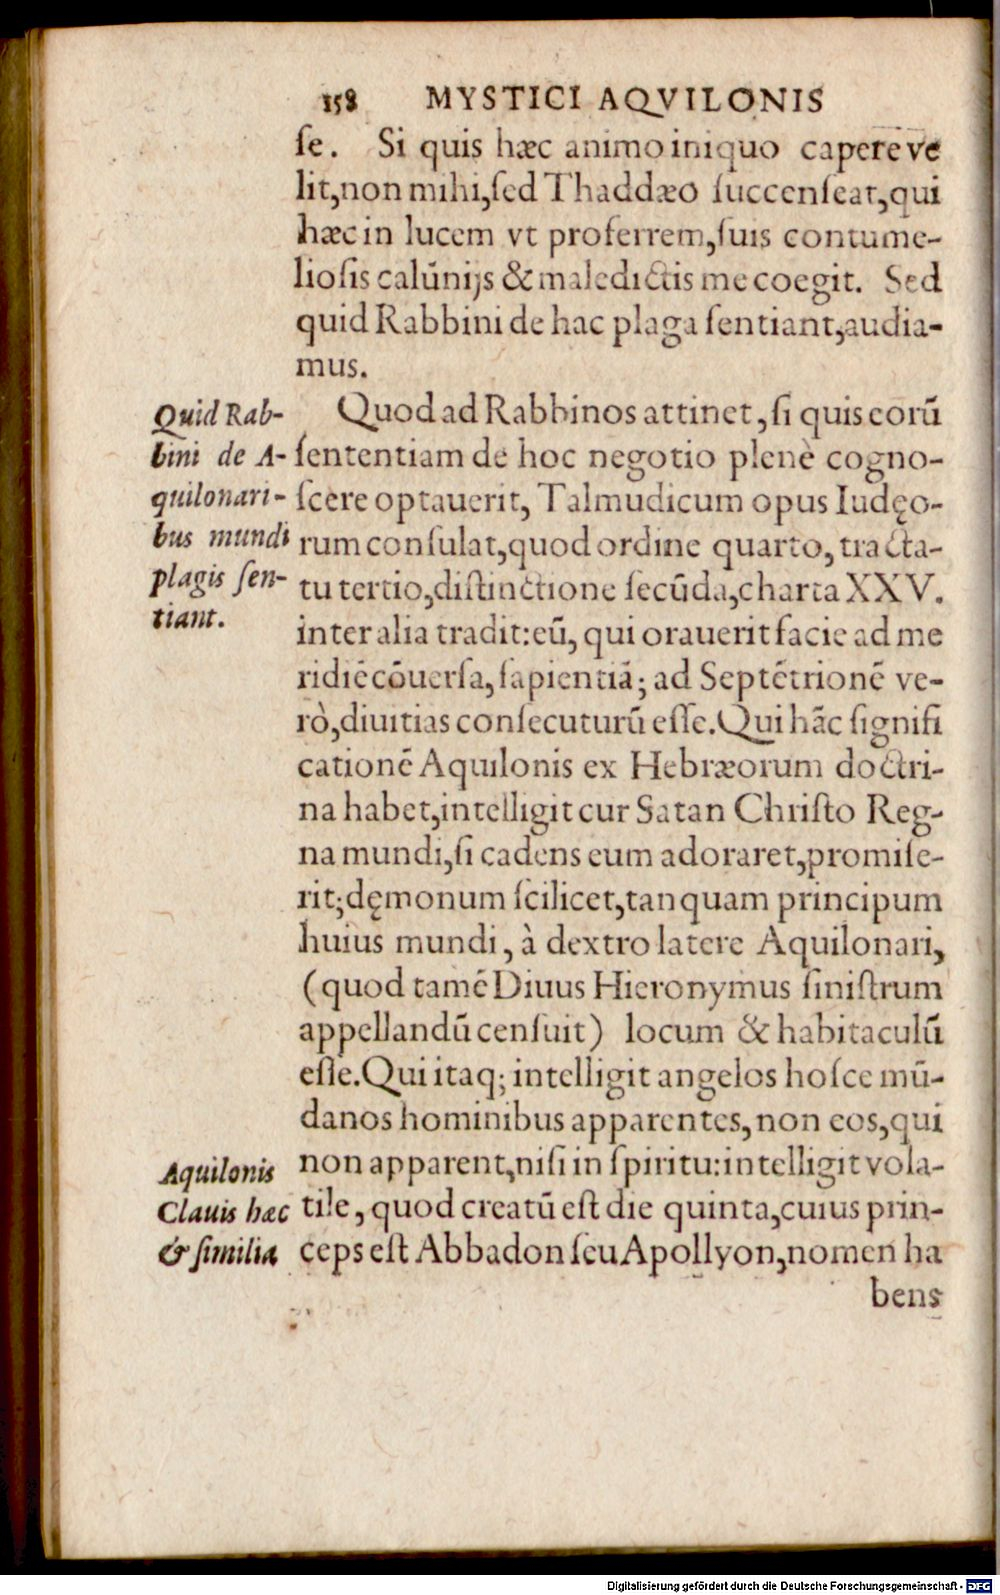 158 MYSTICI AQVILONIS
ſe. Si quis hæc animo iniquo capere ve
lit, non mihi, ſed Thaddæo ſuccenſeat, qui
hæc in lucem vt proferrem, ſuis contume-
lioſis calūnijs & maledictis me coegit. Sed
quid Rabbini de hac plaga ſentiant, audia-
mus.
Quod ad Rabbinos attinet, ſi quis eorū
ſententiam de hoc negotio plenè cogno-
ſcere optauerit, Talmudicum opus Iudęo-
rum conſulat, quod ordine quarto, tracta-
tu tertio, diſtinctione ſecūda, charta XXV.
inter alia tradit: eū, qui orauerit facie ad me
ridiē cōuerſa, ſapientiā; ad Septētrionē ve-
rò, diuitias conſecuturū eſſe. Qui hāc ſignifi
cationē Aquilonis ex Hebræorum doctri-
na habet, intelligit cur Satan Chriſto Reg-
na mundi, ſi cadens eum adoraret, promiſe-
rit; dęmonum ſcilicet, tanquam principum
huius mundi, à dextro latere Aquilonari,
(quod tamē Diuus Hieronymus ſiniſtrum
appellandū cenſuit) locum & habitaculū
eſſe. Qui itaq; intelligit angelos hoſce mū-
danos hominibus apparentes, non eos, qui
non apparent, niſi in ſpiritu: intelligit vola-
tile, quod creatū eſt die quinta, cuius prin-
ceps eſt Abbadon ſeu Apollyon, nomen ha
bens
Quid Rab-
bini de A-
quilonari-
bus mundi
plagis ſen-
tiant.
Aquilonis
Clauis hæc
& ſimilia
Digitalisierung gefördert durch die Deutsche Forschungsgemeinschaft - DFG